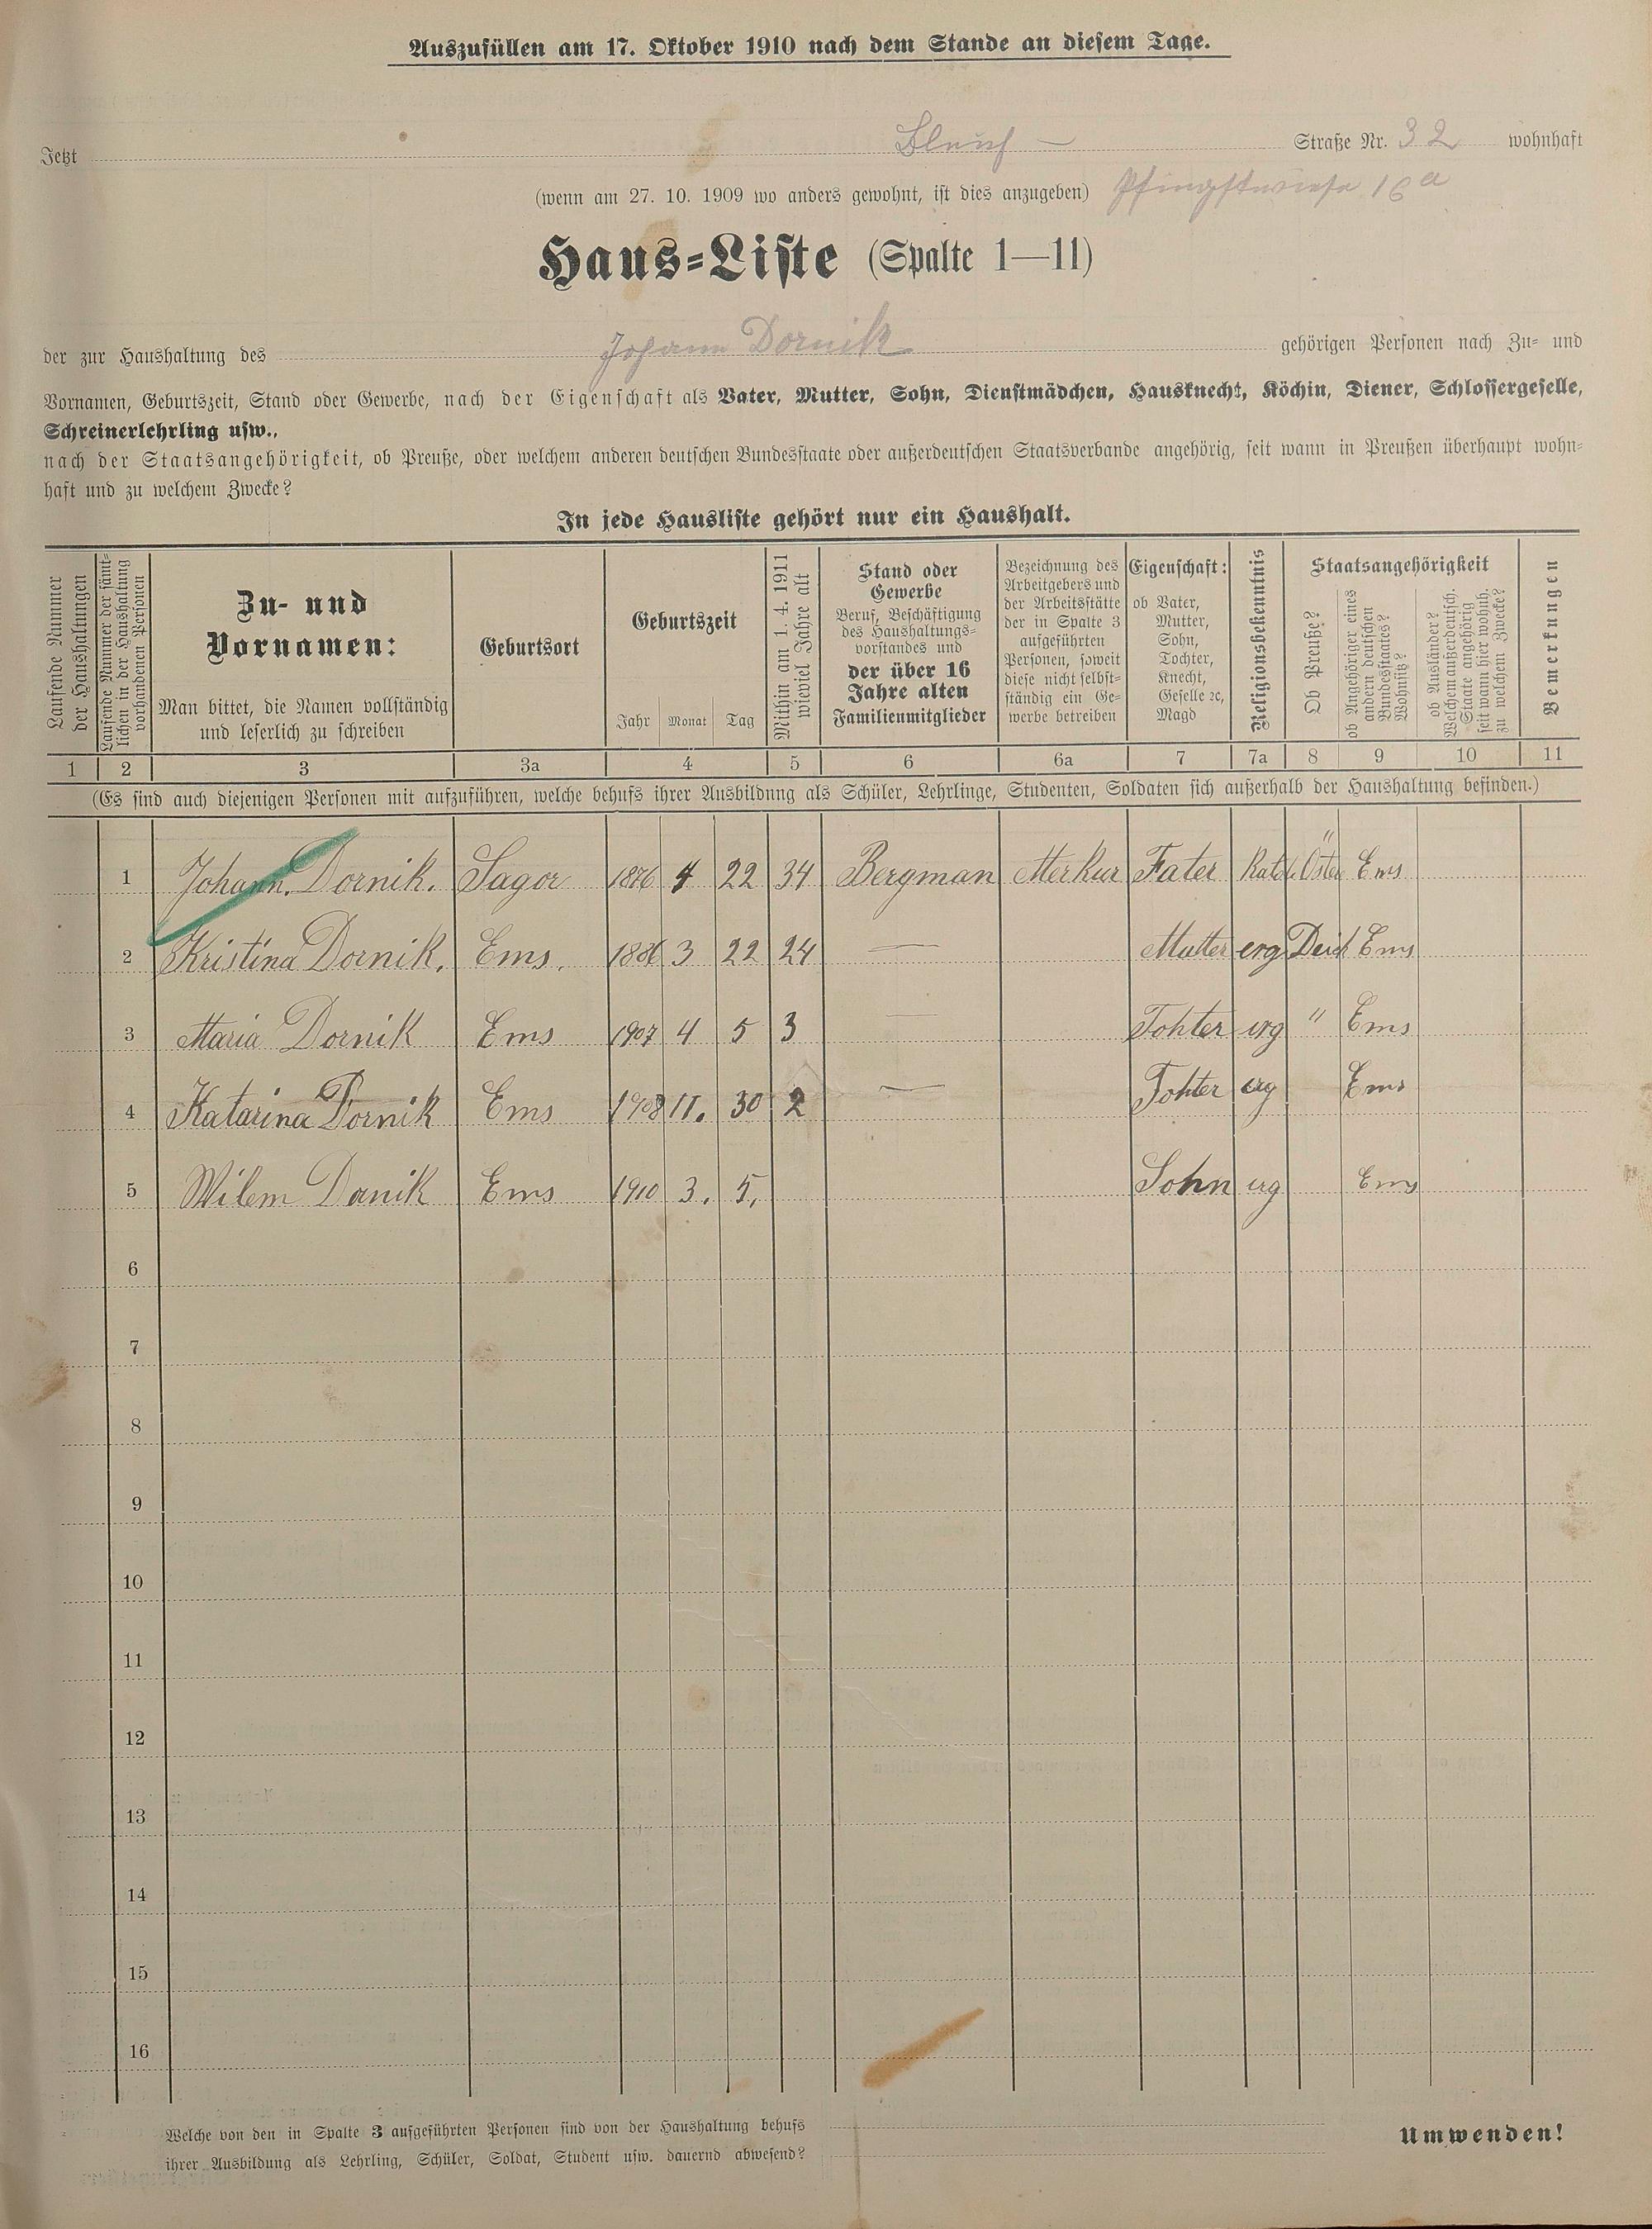 Auszufüllen am 17. Oktober 1910 nach dem Stande an diesem Tage.
Jetzt Straße Nr. 32 wohnhaft
(wenn am 27. 10. 1909 wo anders gewohnt, ist dies anzugeben) Pfingstwiese 16 a
Haus-Liste (Spalte 1—11)
der zur Haushaltung des Johann Dornik gehörigen Personen nach Zu- und
Vornamen, Geburtszeit, Stand oder Gewerbe, nach der Eigenschaft als Vater, Mutter, Sohn, Dienstmädchen, Hausknecht, Köchin, Diener, Schlossergeselle,
Schreinerlehrling usw.,
nach der Staatsangehörigkeit, ob Preuße, oder welchem anderen deutschen Bundesstaate oder außerdeutschen Staatsverbande angehörig, seit wann in Preußen überhaupt wohn-
haft und zu welchem Zwecke?
In jede Hausliste gehört nur ein Haushalt.
Laufende Nummer
der Haushaltungen
Laufende Nummer der sämt-
lichen in der Haushaltung
vorhandenen Personen
Zu- und
Vornamen:
Man bittet, die Namen vollständig
und leserlich zu schreiben
Geburtsort
Geburtszeit
Jahr Monat Tag
Mithin am 1. 4. 1911
wieviel Jahre alt
Stand oder
Gewerbe
Beruf, Beschäftigung
des Haushaltungs-
vorstandes und
der über 16
Jahre alten
Familienmitglieder
Bezeichnung des
Arbeitgebers und
der Arbeitsstätte
der in Spalte 3
aufgeführten
Personen, soweit
diese nicht selbst-
ständig ein Ge-
werbe betreiben
Eigenschaft:
ob Vater,
Mutter,
Sohn,
Tochter,
Knecht,
Geselle ꝛc,
Magd
Religionsbekenntnis
Staatsangehörigkeit
Ob Preuße?
ob Angehöriger eines
andern deutschen
Bundesstaates?
Wohnsitz?
ob Ausländer?
Welchem außerdeutsch.
Staate angehörig
seit wann hier wohnh.
zu welchem Zwecke?
Bemerkungen
1 2 3 3a 4 5 6 6a 7 7a 8 9 10 11
(Es sind auch diejenigen Personen mit aufzuführen, welche behufs ihrer Ausbildung als Schüler, Lehrlinge, Studenten, Soldaten sich außerhalb der Haushaltung befinden.)
1 Johann. Dornik. Sagor 1876 4 22 34 Bergman Merkur Fater Ems
2 Kristina Dornik. Ems. 1886 3 22 24 — Mutter erg Ems
3 Maria Dornik Ems 1907 4 5 3 — Tohter erg " Ems
4 Katarina Dornik Ems 1908 11. 30 2 — Tohter erg Ems
5 Wilem Dornik Ems 1910 3. 5. Sohn erg Ems
6
7
8
9
10
11
12
13
14
15
16
Welche von den in Spalte 3 aufgeführten Personen sind von der Haushaltung behufs
ihrer Ausbildung als Lehrling, Schüler, Soldat, Student usw. dauernd abwesend?
Umwenden!